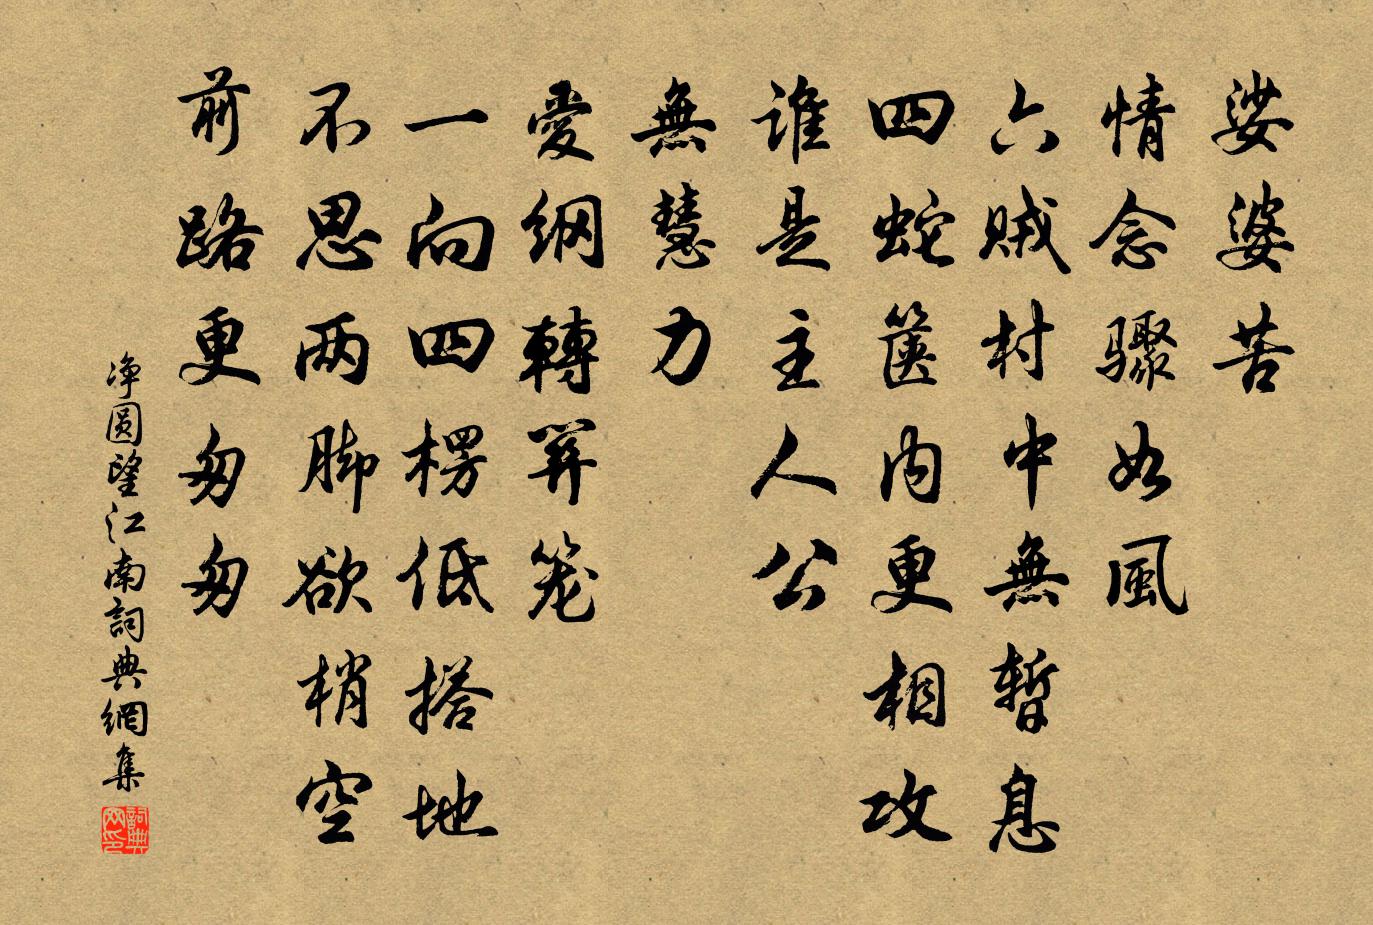 娑婆苦
情念骤如風
六贼村中無暫息
四蛇箧内更相攻
谁是主人公
無慧力
愛網轉羿笼
一向四楞低搭地
不思两脚欲梢空
前路更匆匆
净圆望江南詞典網集
詞典网印